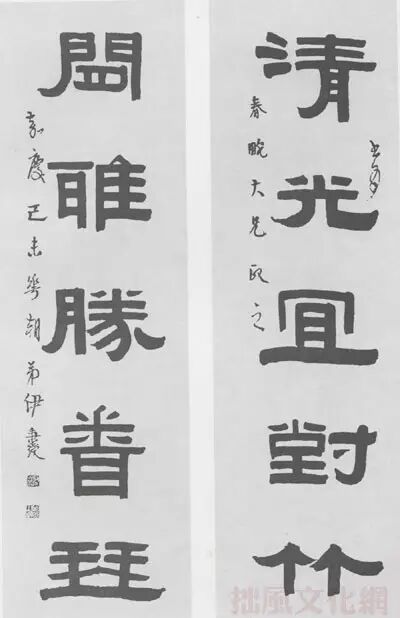 清光宜對竹
書為
春畹大兄政之
閒雅勝聞琴
嘉慶己未華朝弟伊秉綬
拙風文化網